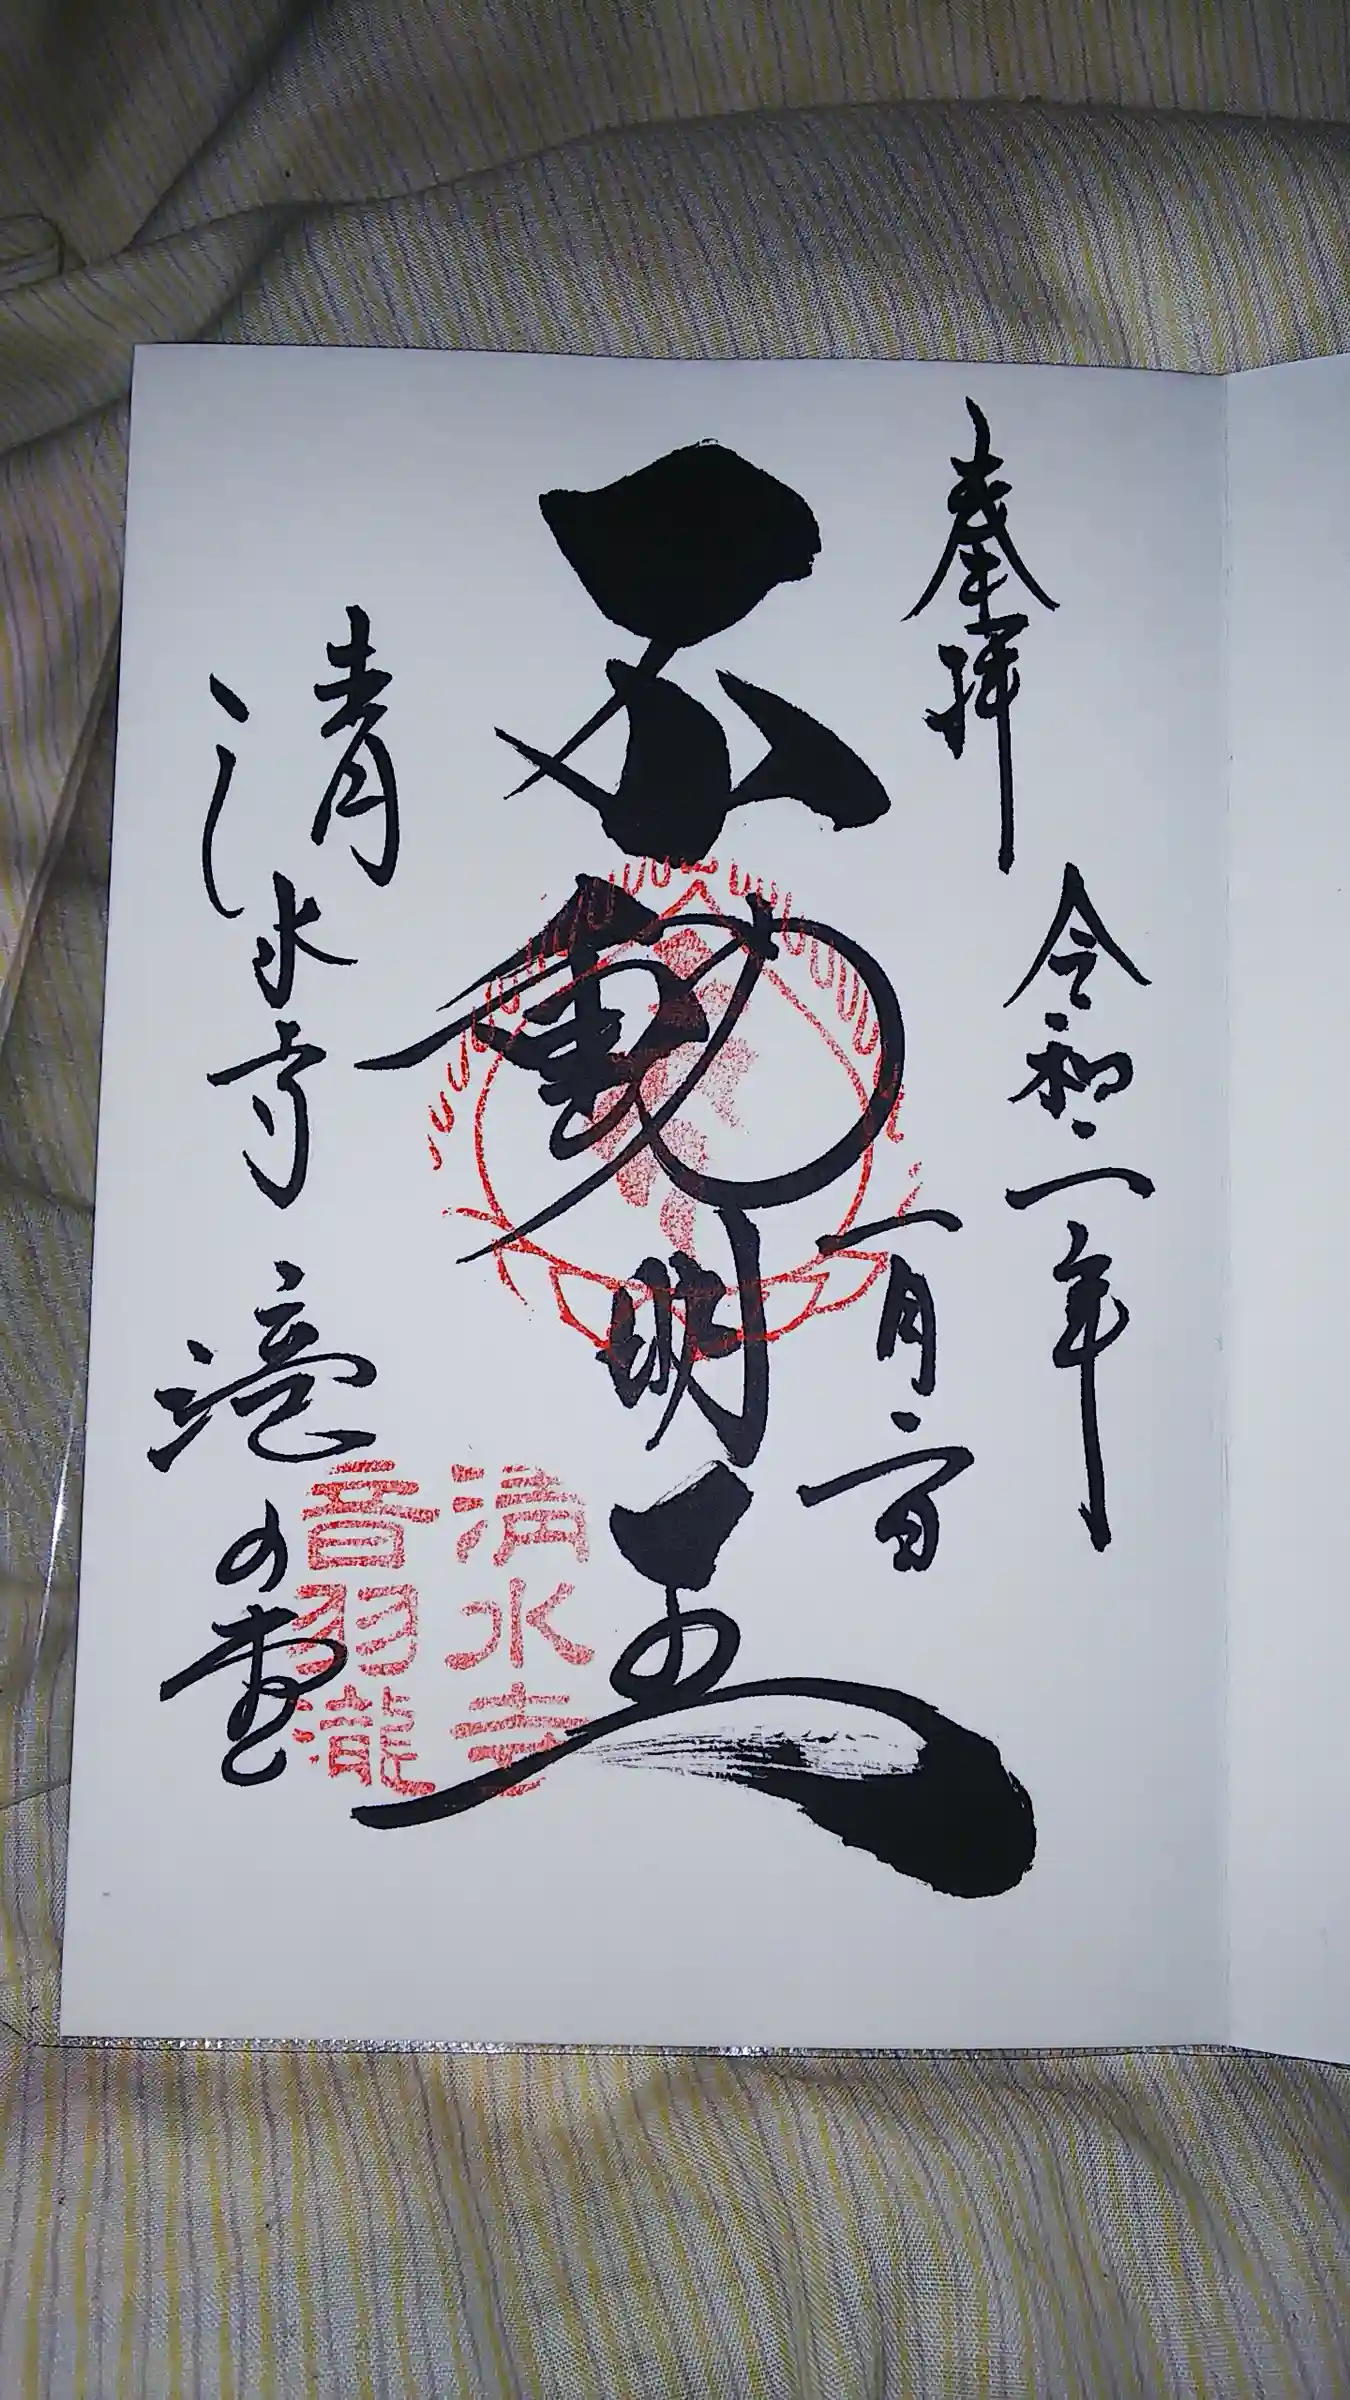 奉拝
令和二年
一月二日
不動明王
清水寺
音羽瀧
清水寺 滝の堂